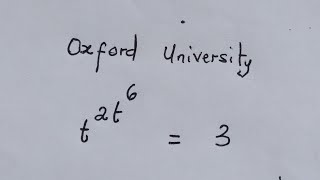 Oxford University
t^{2t^{6}} = 3